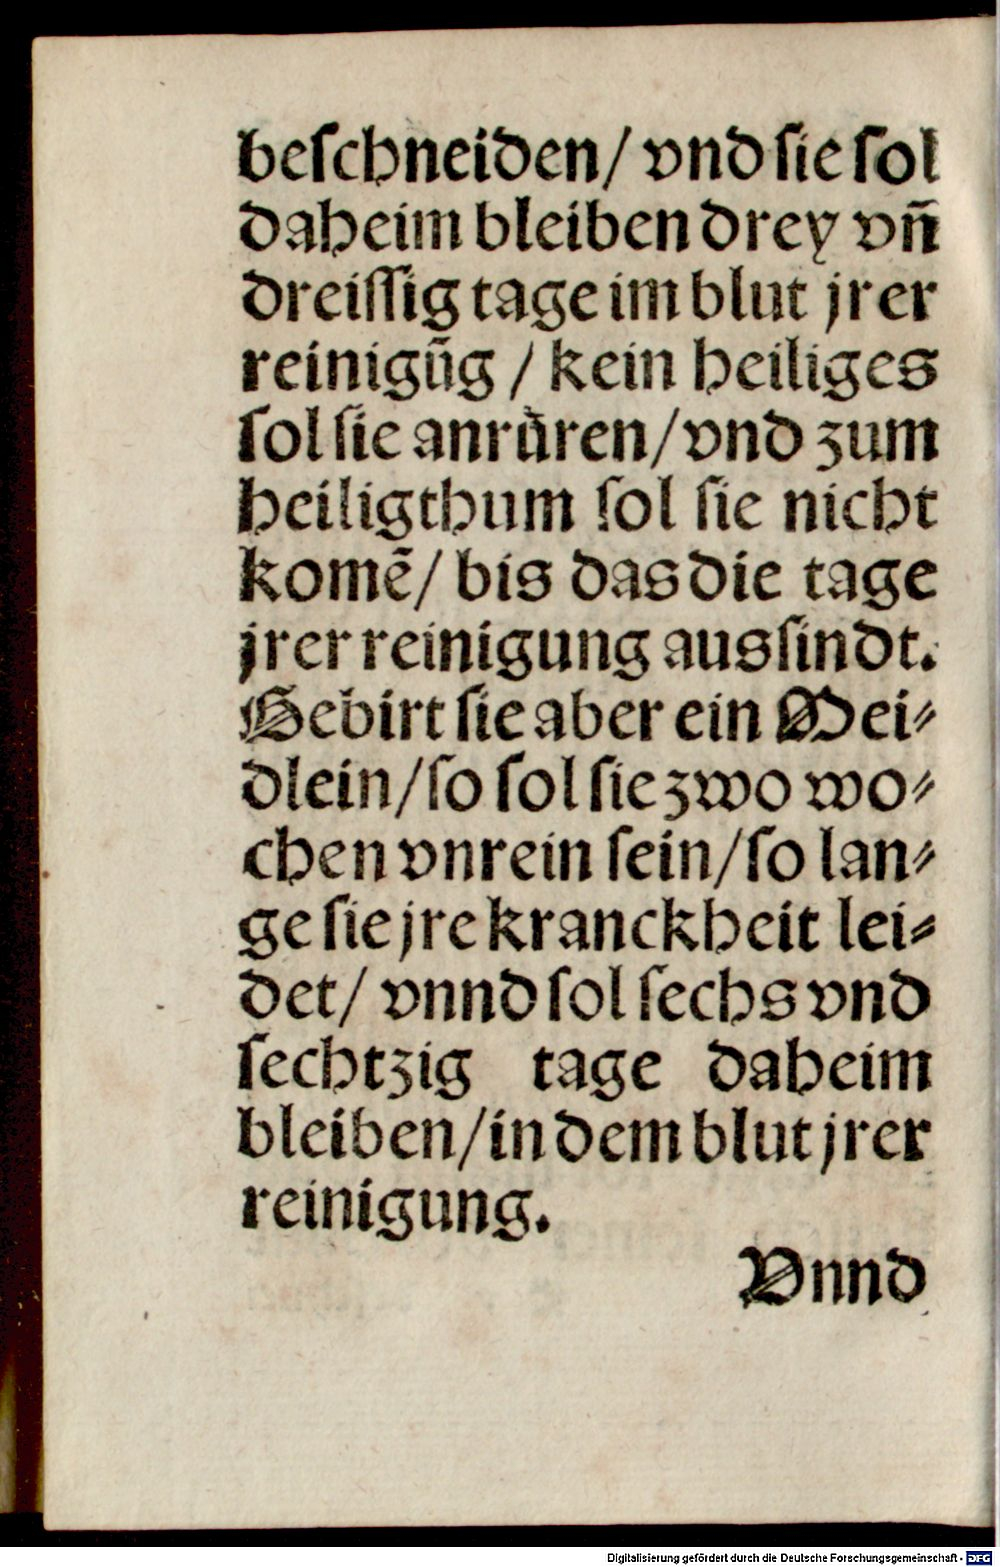 beſchneiden/ vnd ſie ſol
daheim bleiben drey vñ
dreiſſig tage im blut jrer
reinigũg / kein heiliges
ſol ſie anruͤren/ vnd zum
heiligthum ſol ſie nicht
komẽ/ bis das die tage
jrer reinigung aus ſindt.
Gebirt ſie aber ein Mei⸗
dlein/ ſo ſol ſie zwo wo⸗
chen vnrein ſein/ ſo lan⸗
ge ſie jre kranckheit lei⸗
det/ vnnd ſol ſechs vnd
ſechtzig tage daheim
bleiben/ in dem blut jrer
reinigung.
Vnnd
Digitalisierung gefördert durch die Deutsche Forschungsgemeinschaft - DFG